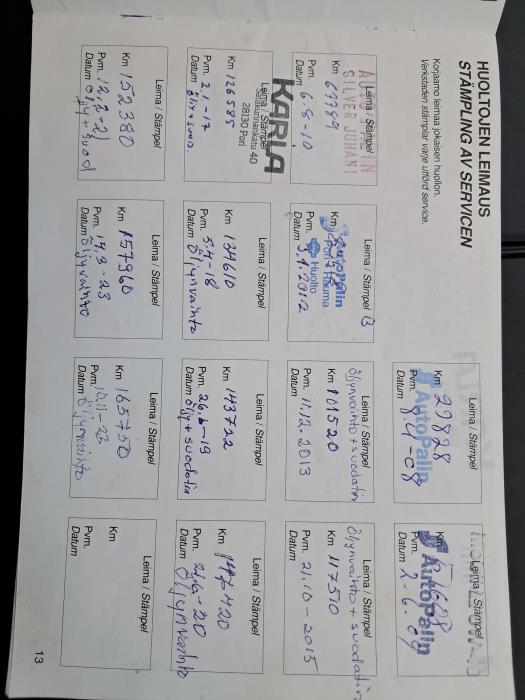 HUOLTOJEN LEIMAUS
STÄMPLING AV SERVICEN
Korjaamo leimaa jokaisen huollon.
Verkstaden stämplar varje utförd service.
Leima / Stämpel
Km 29828
AutoPalin
Pvm. 8.4-08
Datum
Leima / Stämpel
Km
AutoPalin
Pvm. 2.6.09
Datum
Leima / Stämpel
SILVER JUHANI
Km 67799
Pvm. 6.8-10
Datum
Leima / Stämpel
Km
AutoPalin
Pori Rauma
Huolto
Pvm. 3.1.2012
Datum
Leima / Stämpel
öljynvaihto + suodatin
Km 101520
Pvm. 11.12.2013
Datum
Leima / Stämpel
öljynvaihto + suodatin
Km 117510
Pvm. 21.10-2015
Datum
Leima / Stämpel
KARLA
40
28130 Pori
Km 126585
Pvm. 2.1-17
Datum
Leima / Stämpel
Km 134610
Pvm. 5.4-18
Datum Öljynvaihto
Leima / Stämpel
Km 143722
Pvm. 26.6-19
Datum öljy + suodatin
Leima / Stämpel
Km
Pvm. 24.6-20
Datum Öljynvaihto
Leima / Stämpel
Km 152380
Pvm.
Datum öljy + suod
Leima / Stämpel
Km 157960
Pvm. 14.3-23
Datum Öljynvaihto
Leima / Stämpel
Km 165750
Pvm. 10.11-23
Datum Öljynvaihto
Leima / Stämpel
Km
Pvm.
Datum
13